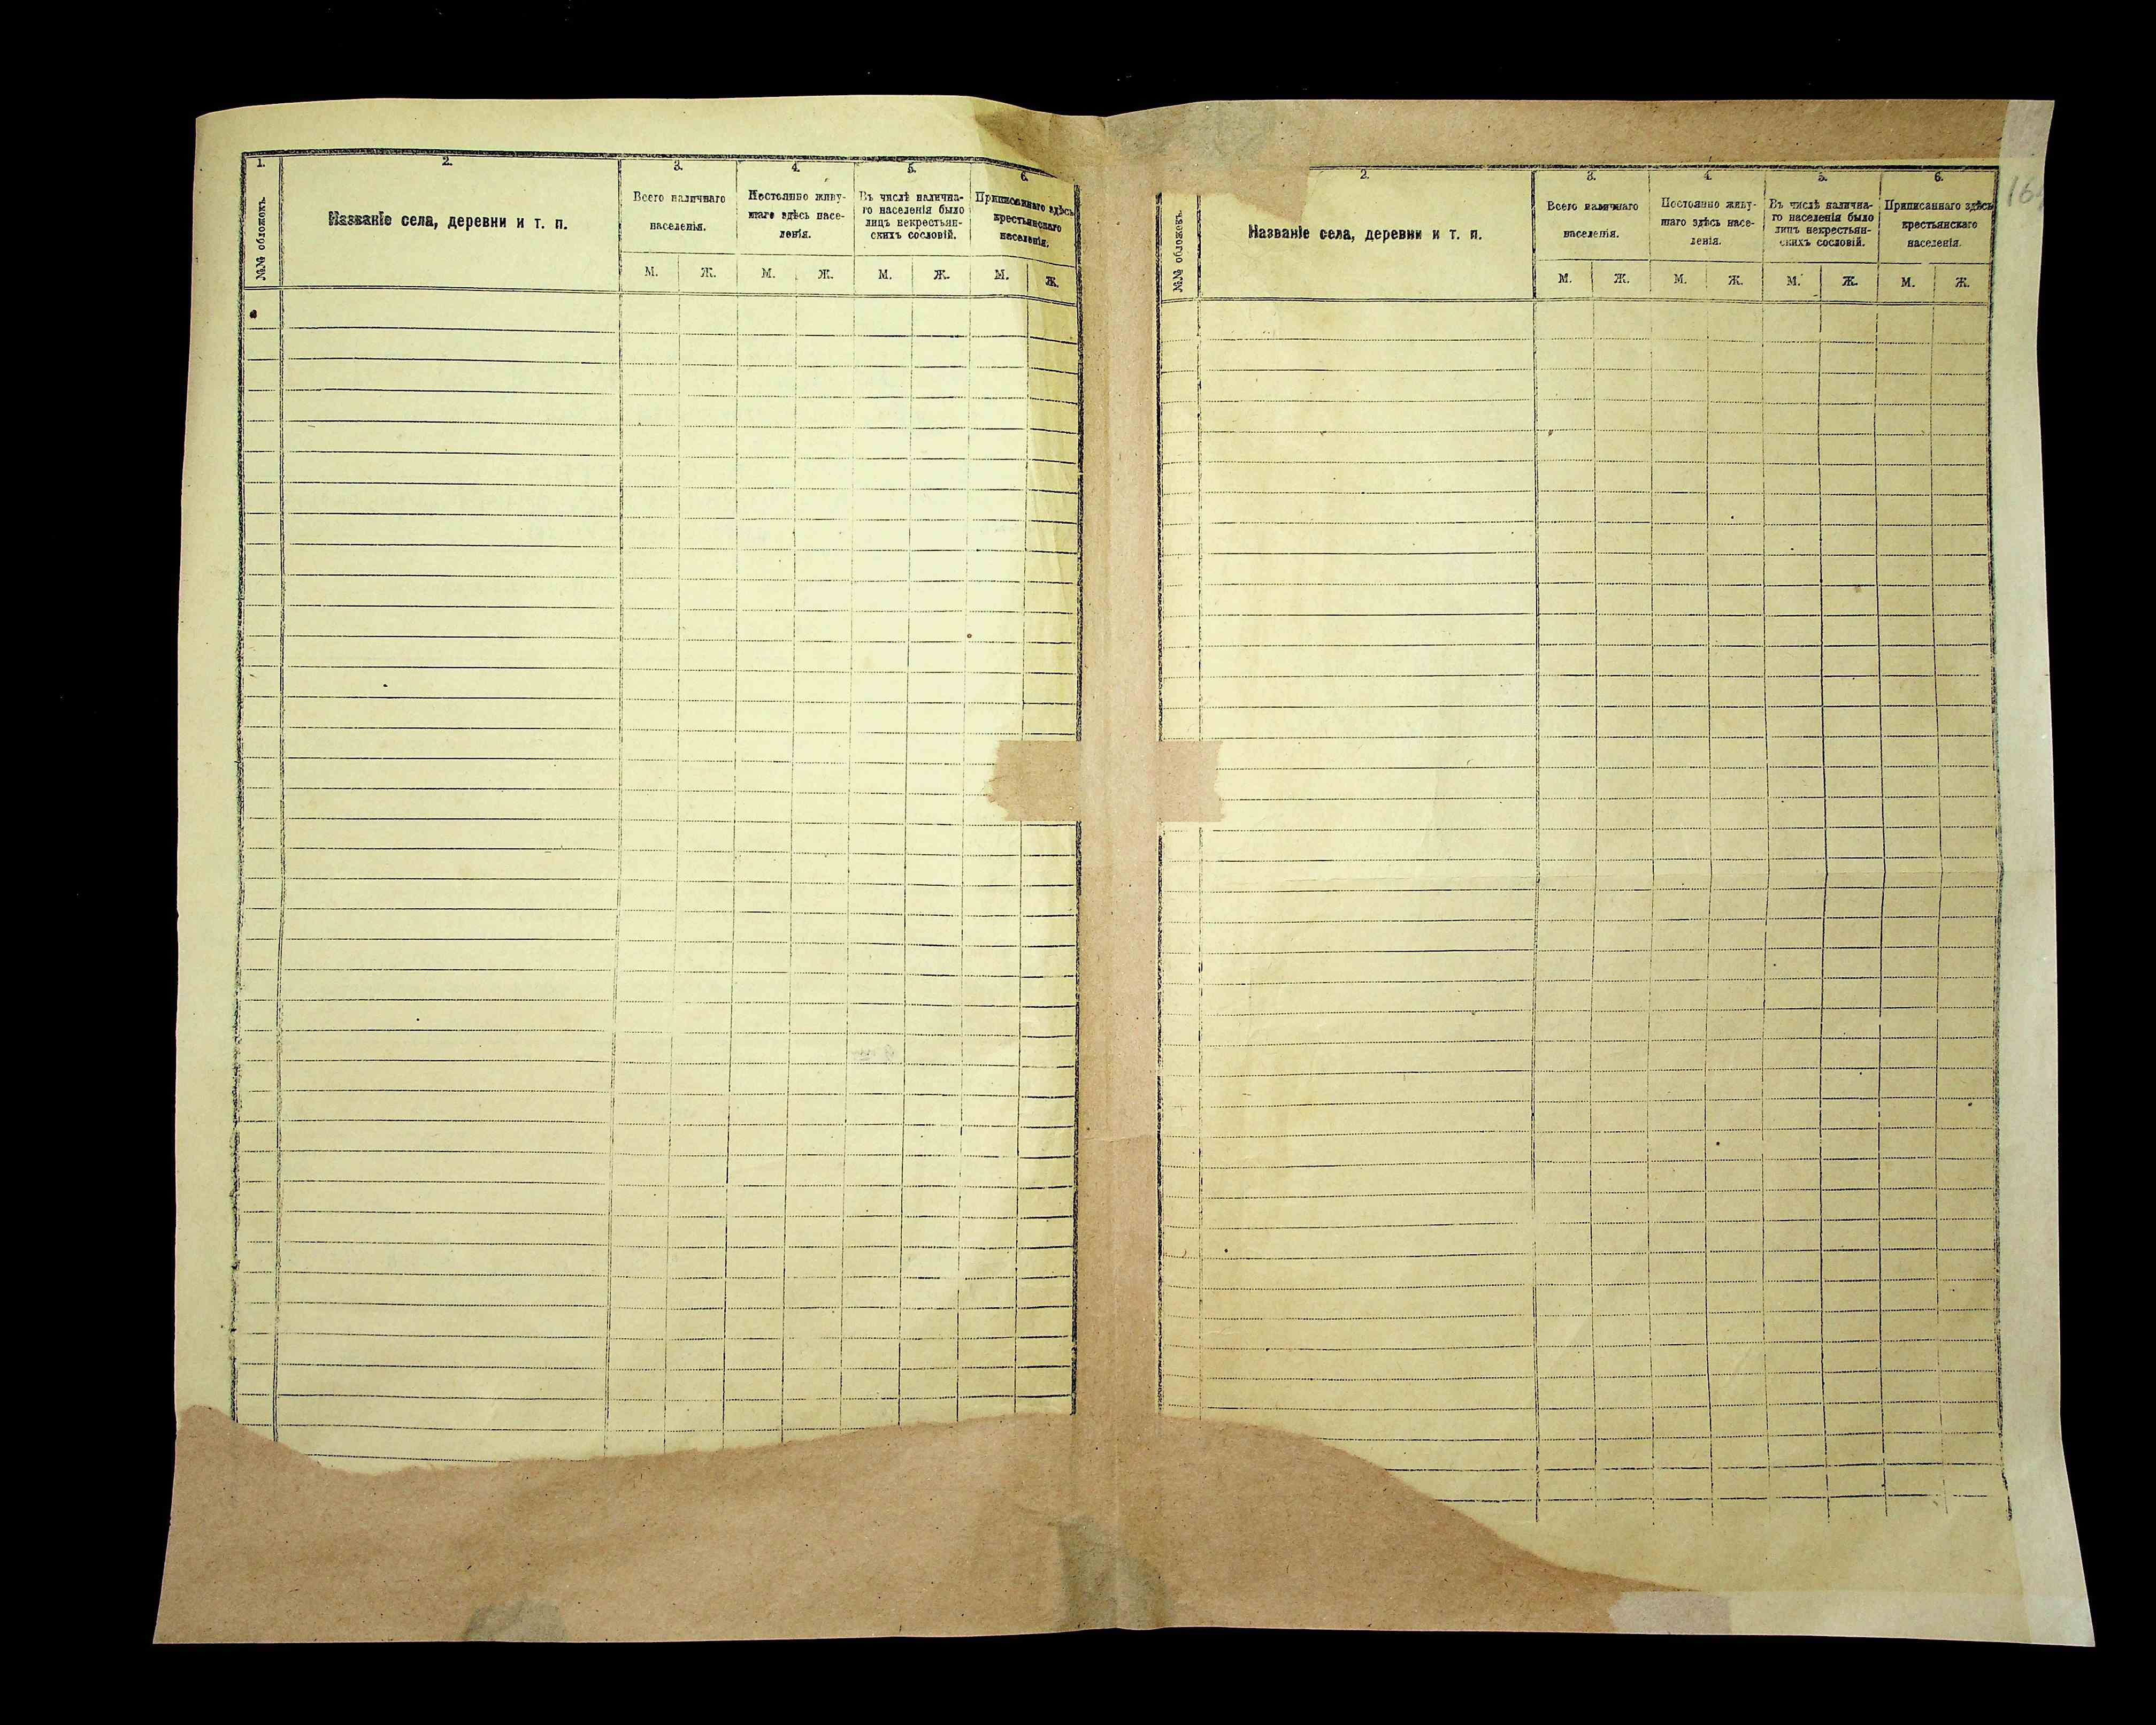 1.
№№ обложекъ.
2.
Названіе села, деревни и т. п.
3.
Всего наличнаго
населенія.
М. Ж.
4.
Постоянно живу-
щаго здѣсь насе-
ленія.
М. Ж.
5.
Въ числѣ налична-
го населенія было
лицъ некрестьян-
скихъ сословій.
М. Ж.
6.
Приписаннаго здѣсь
крестьянскаго
населенія.
М. Ж.
№№ обложекъ.
2.
Названіе села, деревни и т. п.
3.
Всего наличнаго
населенія.
М. Ж.
4.
Постоянно живу-
щаго здѣсь насе-
ленія.
М. Ж.
5.
Въ числѣ налична-
го населенія было
лицъ некрестьян-
скихъ сословій.
М. Ж.
6.
Приписаннаго здѣсь
крестьянскаго
населенія.
М. Ж.